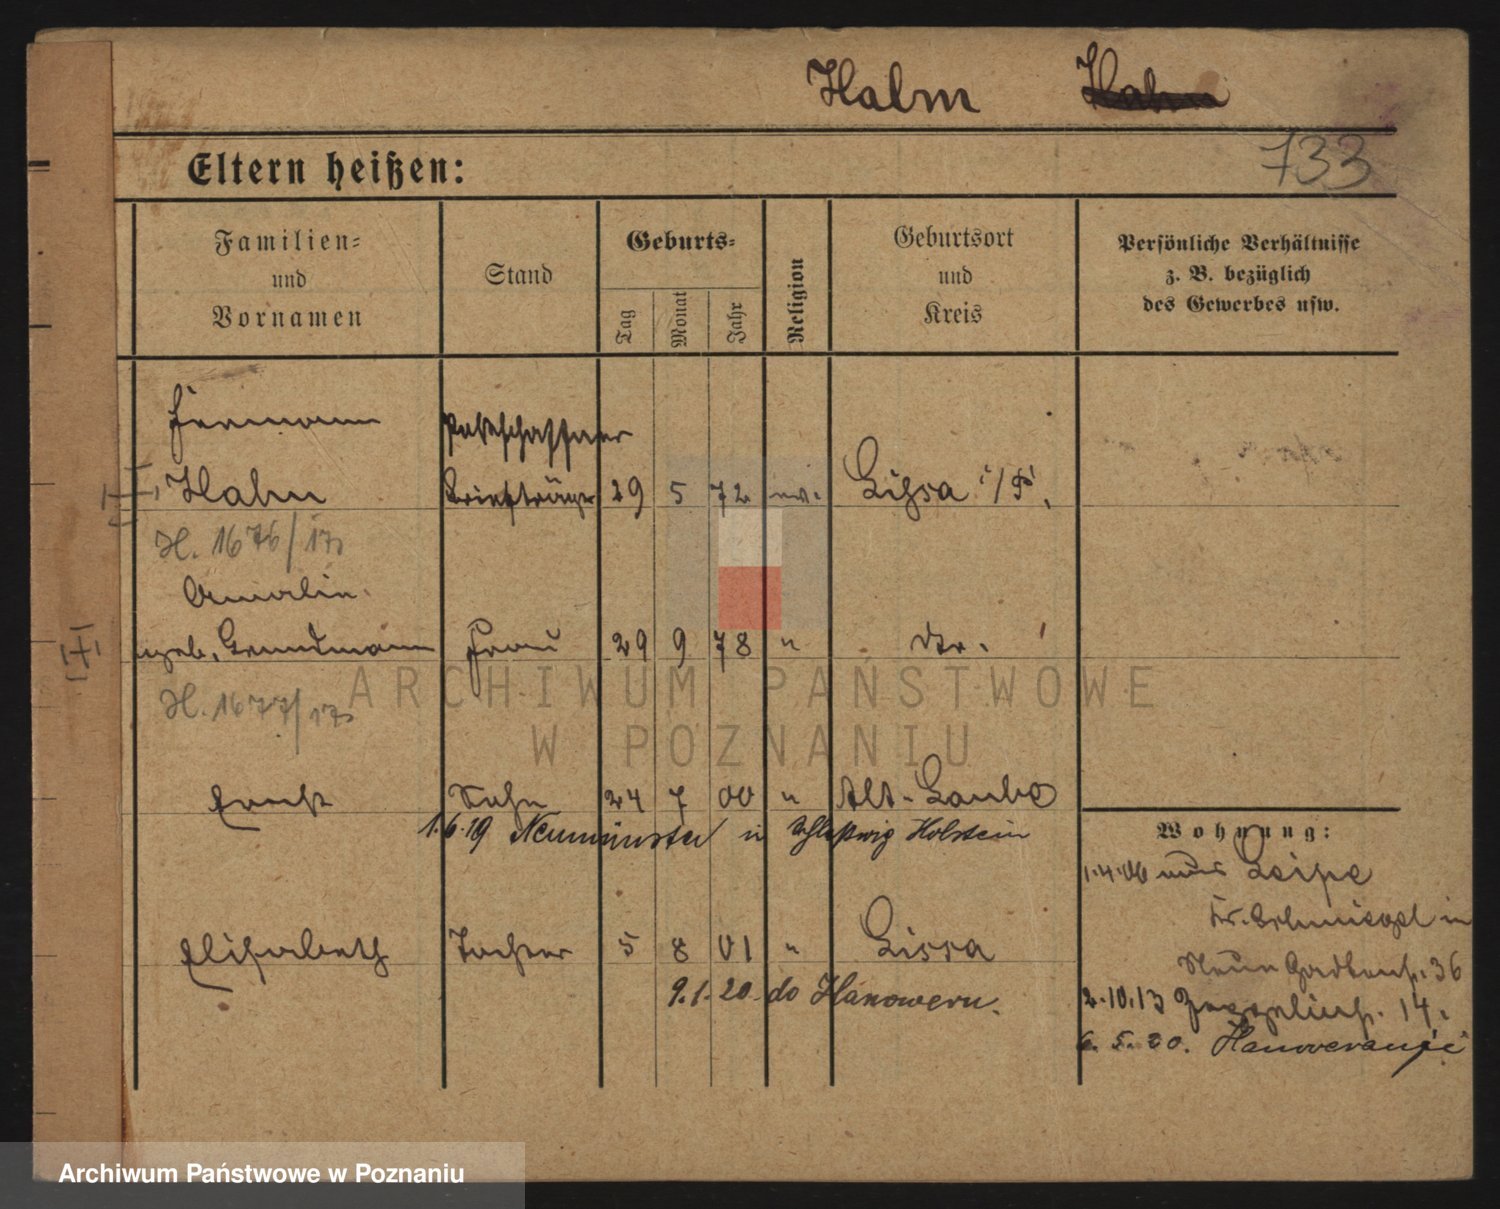 Halm Hahn
733
Eltern heißen:
Familien=
und
Vornamen
Stand
Geburts=
Tag
Monat
Jahr
Religion
Geburtsort
und
Kreis
Persönliche Verhältnisse
z. B. bezüglich
des Gewerbes usw.
Hermann
Postschaffner
Halm Briefträger 29 5 72 ev. Lissa i/P.
H. 1676/17
Amalie
geb. Grundmann Frau 29 9 78 " dto.
H. 1677/17
Ernst Sohn 24 7 00 " Alt-Laube
1.6.19 Neumünster in Schleswig Holstein
Wohnung:
1.4.06 aus Leipe
Kr. Schmiegel in
Neue Gartenstr. 36
Elisabeth Tochter 5 8 01 " Lissa
9.1.20 do Hanoweru.
2.10.13 Zeppelinstr. 14.
6. 5. 20.
ARCHIWUM PAŃSTWOWE
W POZNANIU
Archiwum Państwowe w Poznaniu